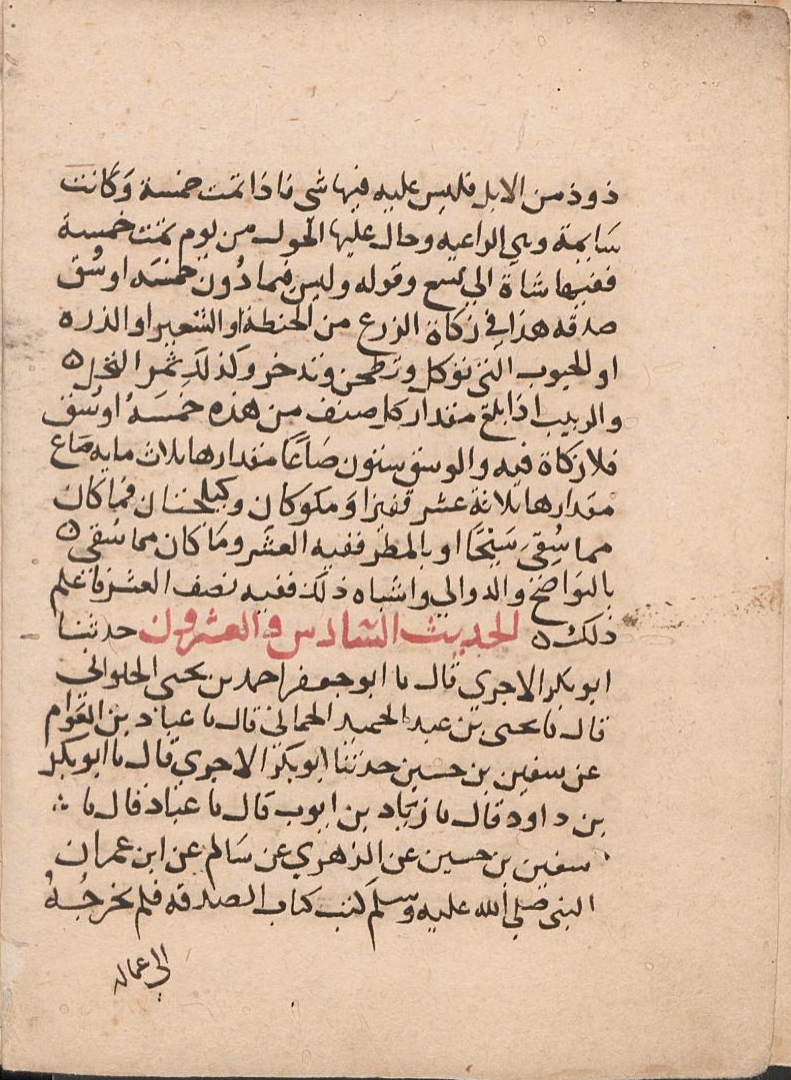 ذود من الابل فليس عليه فيها شي فاذا تمت خمسة وكانت
سايمة وهي الراعيه وحال عليها الحول من يوم تمت خمسة
ففيها شاة الي تسع وقوله وليس فيما دون خمسه اوسُق
صدقه هذا في زكاة الزرع من الحنطة او الشعير او الذره
او الحبوب التي توكل وتطحن وتدخر وكذلك ثمر النخل ه
والزبيب اذا بلغ مقدار كل صنف من هذه خمسة اوسق
فلا زكاة فيه والوسق ستون صَاعًا مقدارها ثلاث مايه صَاع
مقدارها ثلاثة عشر قفيزا ومكوكان وكيلجتان فما كان
مما سُقِي سَيْحًا او بالمطر ففيه العشر ومَا كان مما سُقي ه
بالنواضح والدوالي واشباه ذلك ففيه نصف العشر فاعلم
ذلك ه الحديث السَّادس والعشرون حدثنا
ابو بكر الاجري قال نا ابو جعفر احمد بن يحيى الحلواني
قال نا يحيى بن عبد الحميد الحماني قال نا عباد بن العَوام
عن سفين بن حسين حدثنا ابو بكر الاجري قال نا ابو بكر
بن داود قال نا زياد بن ايوب قال نا عباد قال نا
سفين بن حسين عن الزهري عن سَالم عن ابن عمر ان
النبي صلي الله عليه وسلم كتب كتاب الصدقه فلم يخرجُهُ
الي عماله